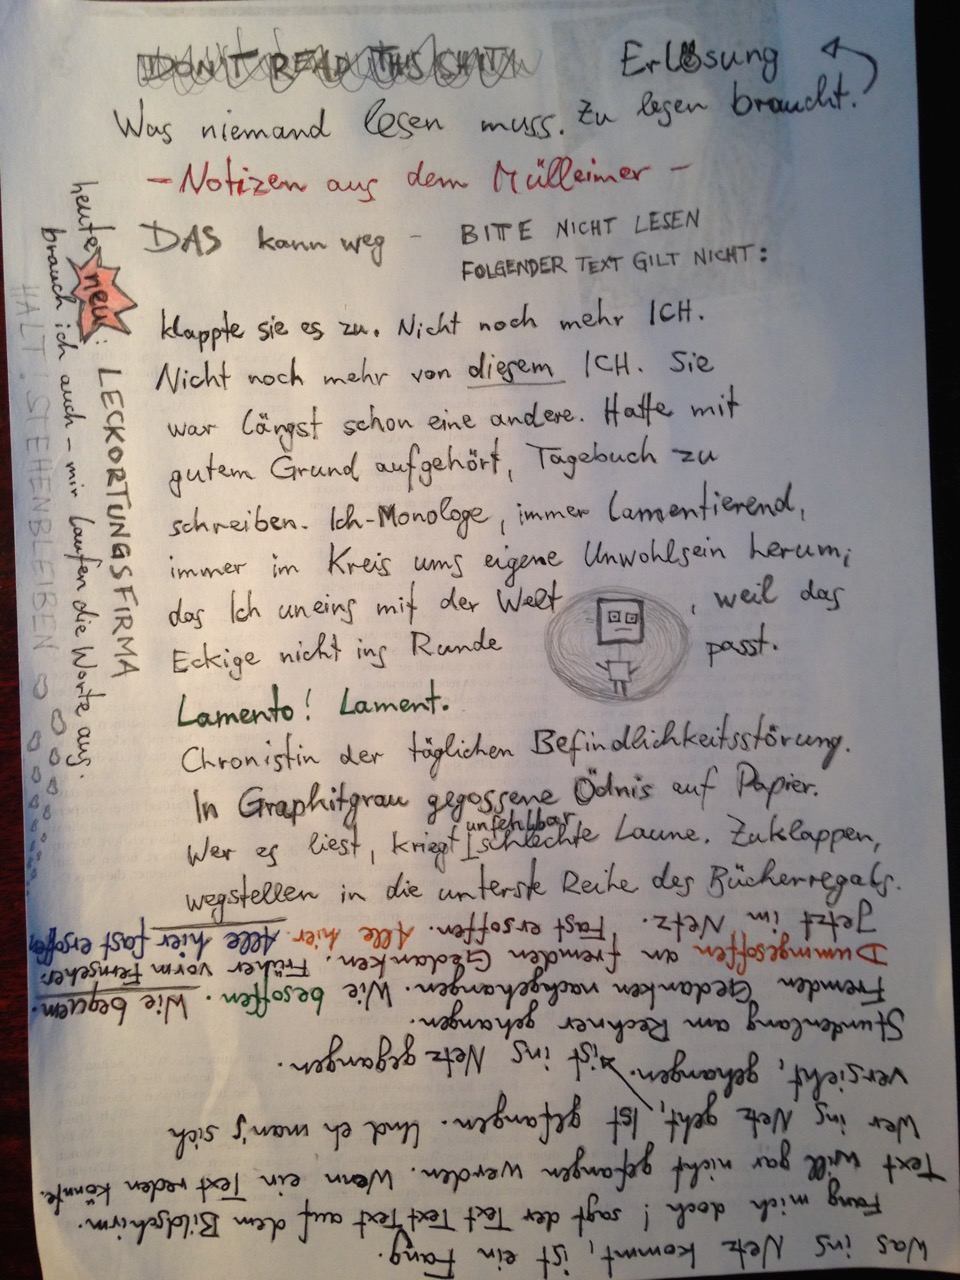 DON'T READ THIS SHIT!
Erlösung
Was niemand lesen muss. Zu lesen braucht.
- Notizen aus dem Mülleimer -
DAS kann weg - BITTE NICHT LESEN
FOLGENDER TEXT GILT NICHT:
klappte sie es zu. Nicht noch mehr ICH.
Nicht noch mehr von diesem ICH. Sie
war längst schon eine andere. Hatte mit
gutem Grund aufgehört, Tagebuch zu
schreiben. Ich-Monologe, immer lamentierend,
immer im Kreis ums eigene Unwohlsein herum;
das Ich uneins mit der Welt, weil das
Eckige nicht ins Runde passt.
Lamento! Lament.
Chronistin der täglichen Befindlichkeitsstörung.
In Graphitgrau gegossene Ödnis auf Papier.
Wer es liest, kriegt unfehlbar schlechte Laune. Zuklappen,
wegstellen in die unterste Reihe des Bücherregals.
Was ins Netz kommt, ist ein Fang.
Fang mich doch! sagt der Text Text Text auf dem Bildschirm.
Text will gar nicht gefangen werden. Wenn ein Text reden könnte.
Wer ins Netz geht, ist gefangen. Und eh man's sich
versieht, gehangen. ist ins Netz gegangen.
Stundenlang am Rechner gehangen.
Fremden Gedanken nachgehangen. Wie besoffen. Wie bequem.
Dummgesoffen an fremden Gedanken. Früher vorm Fernseher.
Jetzt im Netz. Fast ersoffen. Alle hier. Alle hier fast ersoffen
heute neu: LECKORTUNGSFIRMA
brauch ich auch - mir laufen die Worte aus.
HALT! STEHENBLEIBEN